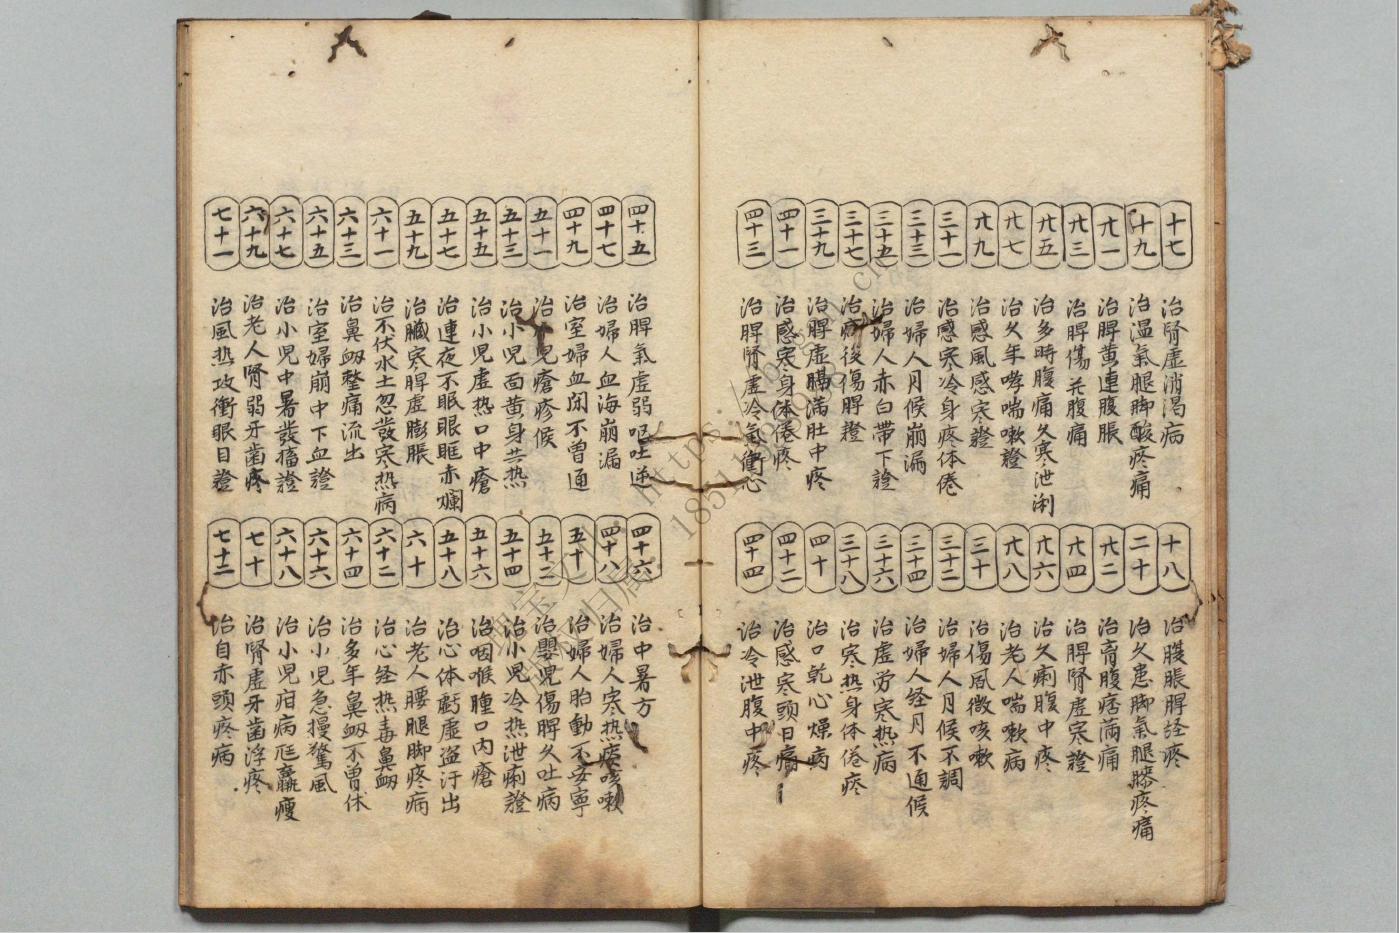 十七 治腎虛消渴病 十八 治膜脹脾経疼
十九 治温氣腿脚酸疼痛 二十 治久患脚氣腿膝疼痛
廿一 治脾黄連腹脹 廿二 治胷腹痞滿痛
廿三 治脾傷并腹痛 廿四 治脾腎虛寒證
廿五 治多時腹痛久寒泄痢 廿六 治久痢腹中疼
廿七 治久年哮喘嗽證 廿八 治老人喘嗽病
廿九 治感風感寒證 三十 治傷風微咳嗽
三十一 治感寒冷身疼体倦 三十二 治婦人月候不調
三十三 治婦人月候崩漏 三十四 治婦人经月不通候
三十五 治婦人赤白帶下證 三十六 治虛労寒热病
三十七 治病後傷脾證 三十八 治寒热身体倦疼
三十九 治脾虛腸滿肚中疼 四十 治口乾心燥病
四十一 治感寒身体倦疼 四十二 治感寒頭目痛
四十三 治脾腎虛冷氣衝心 四十四 治冷泄腹中疼
四十五 治脾氣虛弱呕吐逆 四十六 治中暑方
四十七 治婦人血海崩漏 四十八 治婦人寒热痰咳嗽
四十九 治室婦血闭不曾通 五十 治婦人胎動不安寧
五十一 治小児瘡疹候 五十二 治嬰児傷脾久吐病
五十三 治小児面黄身共热 五十四 治小児冷热泄痢證
五十五 治小児虛热口中瘡 五十六 治咽喉腫口内瘡
五十七 治連夜不眠眼眶赤爛 五十八 治心体虧虛盗汗出
五十九 治臟寒脾虛膨脹 六十 治老人腰腿脚疼病
六十一 治不伏水土忽發寒热病 六十二 治心经热毒鼻衂
六十三 治鼻衂整痛流出 六十四 治多年鼻衂不曾休
六十五 治室婦崩中下血證 六十六 治小児急慢驚風
六十七 治小児中暑發搐證 六十八 治小児疳病尫羸瘦
六十九 治老人腎弱牙菌疼 七十 治腎虛牙菌浮疼
七十一 治風热攻衝眼目證 七十二 治目赤頭疼病